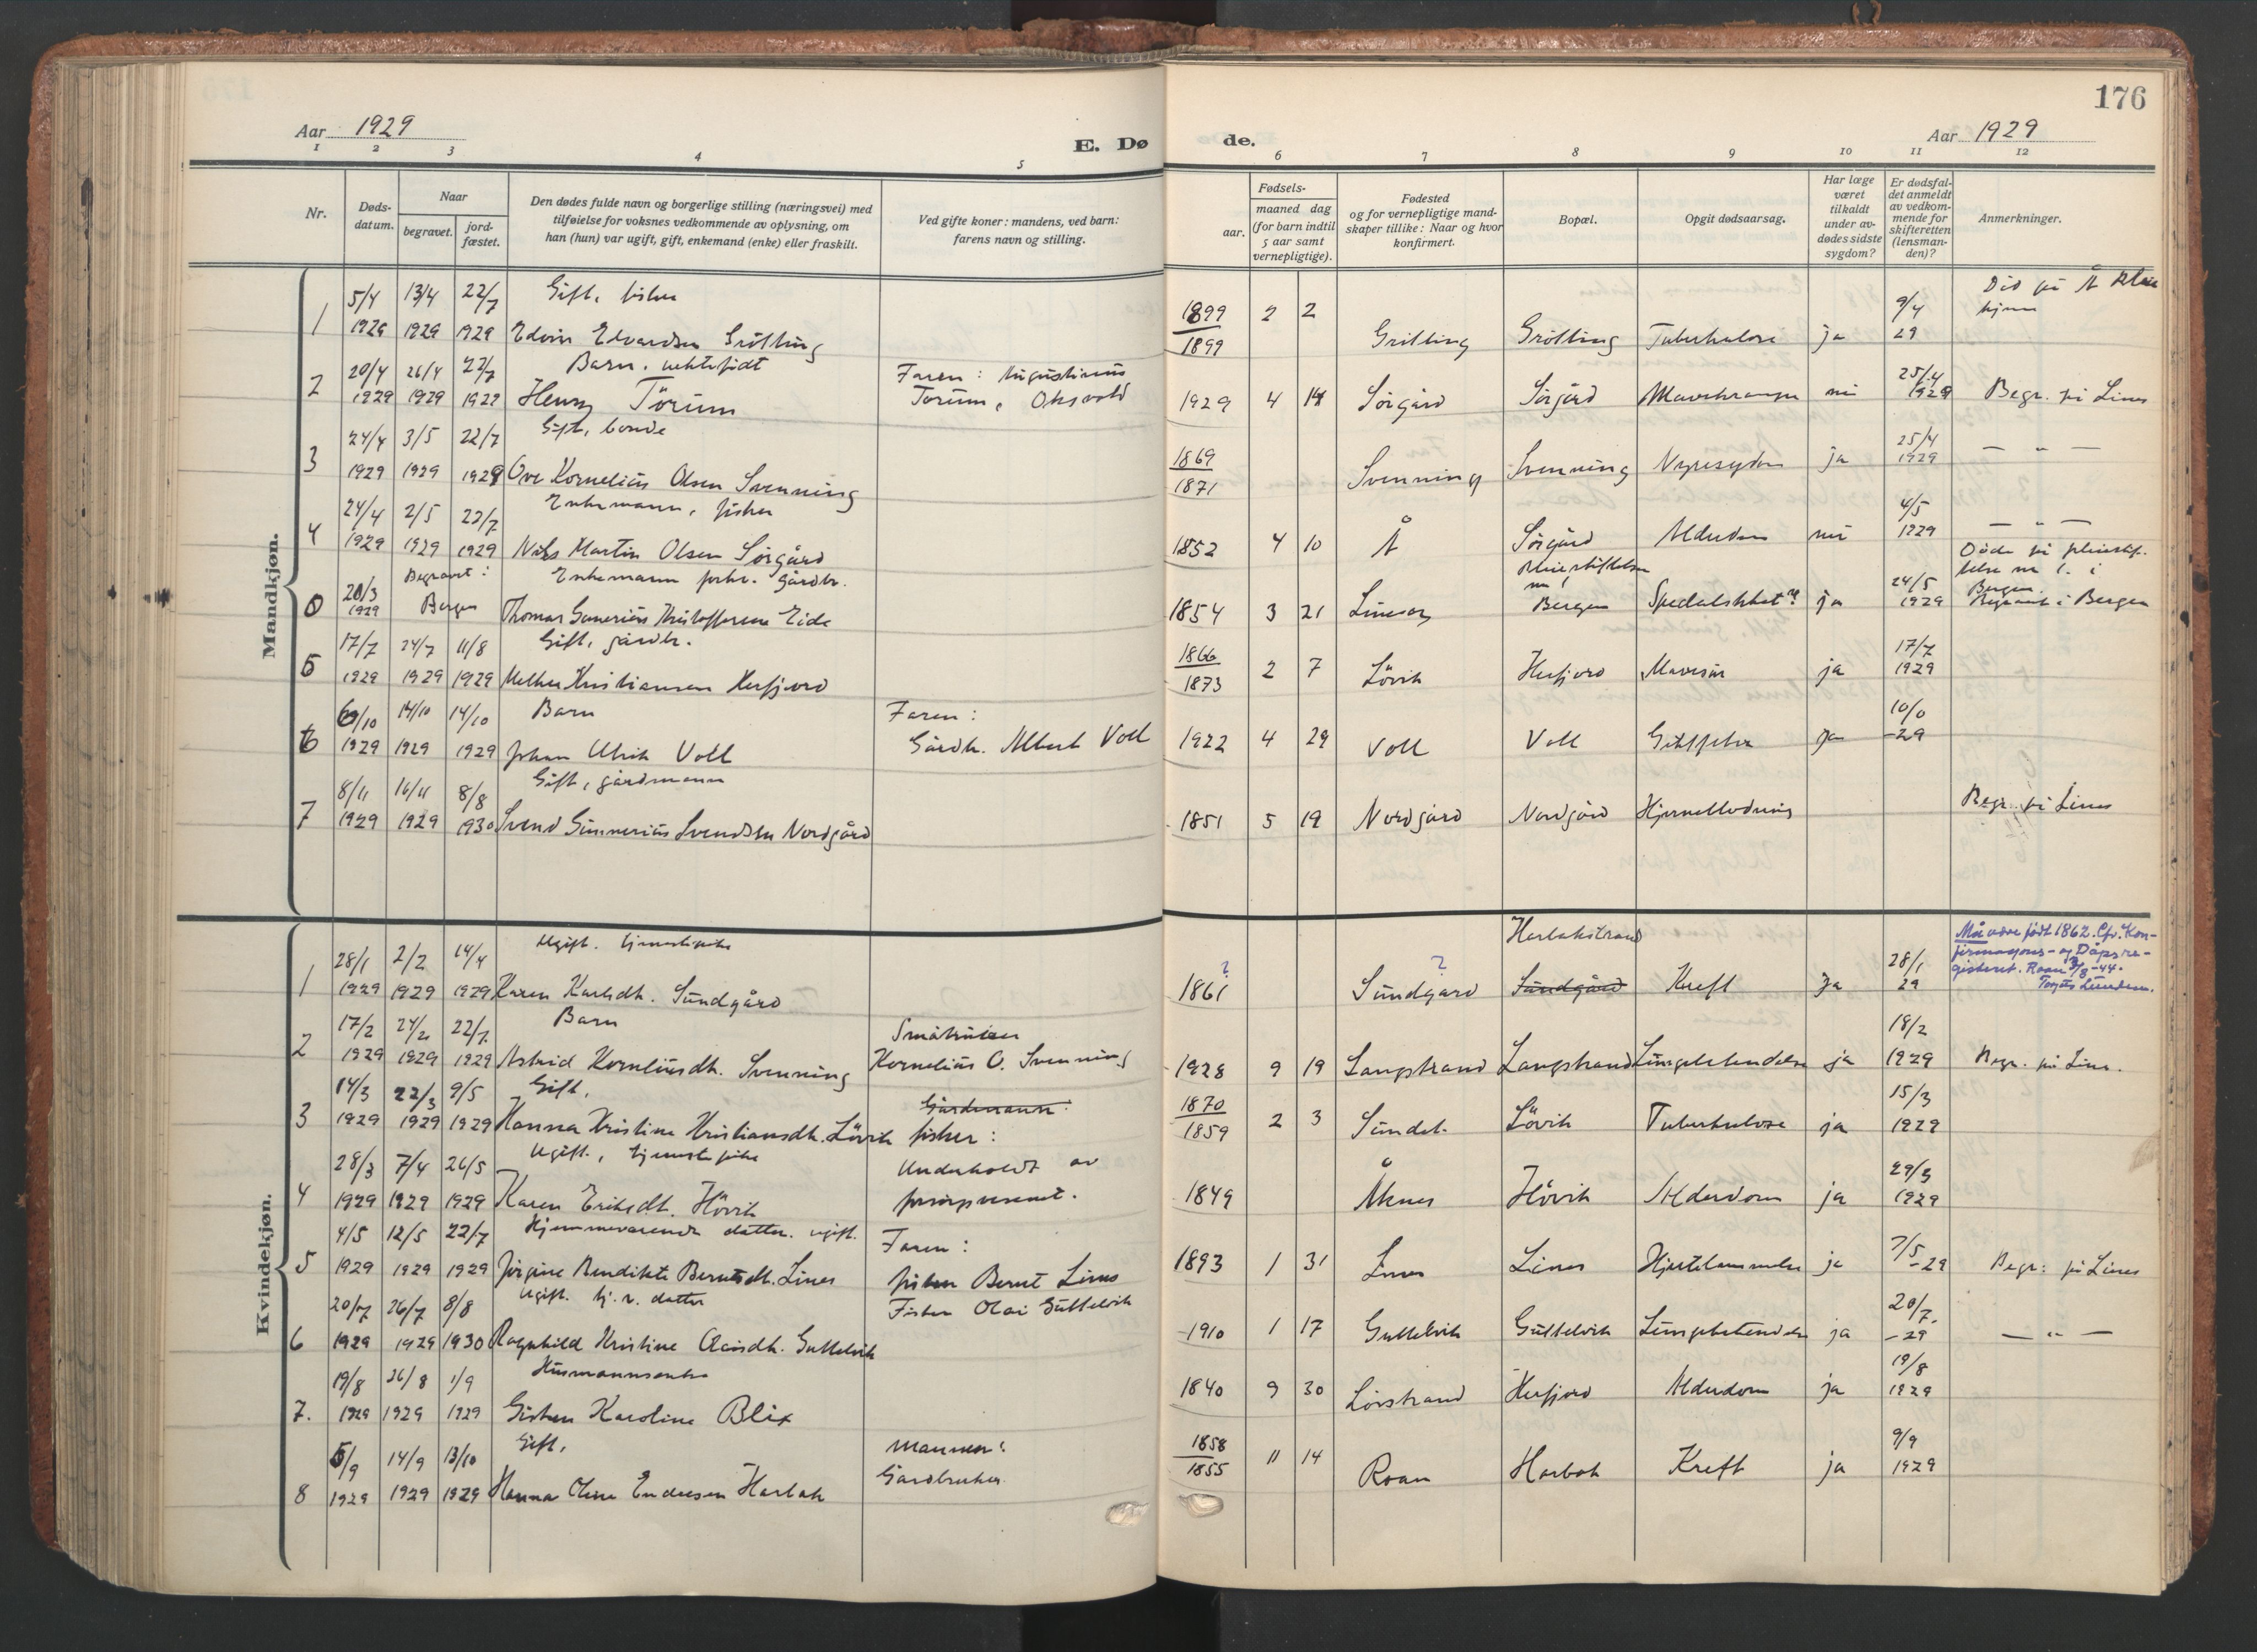 176
Aar 1929
E. Dø
de.
Aar 1929
1 2 3 4 5 6 7 8 9 10 11 12
Nr.
Døds-
datum.
Naar
begravet.
jord-
fæstet.
Den dødes fulde navn og borgerlige stilling (næringsvei) med
tilføielse for voksnes vedkommende av oplysning, om
han (hun) var ugift, gift, enkemand (enke) eller fraskilt.
Ved gifte koner: mandens, ved barn:
farens navn og stilling.
Fødsels-
aar.
maaned dag
(for barn indtil
5 aar samt
vernepligtige).
Fødested
og for vernepligtige mand-
skaper tillike: Naar og hvor
konfirmert.
Bopæl.
Opgit dødsaarsag.
Har læge
været
tilkaldt
under av-
dødes sidste
sygdom?
Er dødsfal-
det anmeldt
av vedkom-
mende for
skifteretten
(lensman-
den)?
Anmerkninger.
Mandkjøn.
5/4 13/4 22/7 Gift, fisker 1899 2 2 9/4 Död på Å
1 1929 1929 1929 Edvin Edvardsen Grötting 1899 Grötting Grötting Tuberkulose ja 29
20/4 26/4 22/7 Barn, uektefödt Faren: Augustinus 25/4
2 1929 1929 1929 Henry Törum Torum, Oksvold 1929 4 14 Sörgård Sörgård Mavekrampe nei 1929 Begr. på Lines
24/4 3/5 22/7 Gift, bonde 1869 25/4
3 1929 1929 1929 Ove Kornelius Olsen Svenning 1871 Svenning Svenning Nyresygdom ja 1929 — " —
24/4 2/5 22/7 Enkemann, fisker 4/5
4 1929 1929 1929 Nils Martin Olsen Sörgård 1852 4 10 Å Sörgård Alderdom nei 1929 — " —
20/3 Begravet: Enkemann forhv. gårdbr. Pleiestiftelsen nr 1 24/5 Döde på pleiestif-
telse nr 1. i Bergen.
0 1929 Bergen Thomas Gunerius Kristoffersen Eide 1854 3 21 Linesöy Bergen Spedalskhet? ja 1929 Begravet i Bergen
17/7 24/7 11/8 Gift, gårdbr. 1866 17/7
5 1929 1929 1929 Melker Kristiansen Herfjord 1873 2 7 Lövik Herfjord Mavesår ja 1929
6/10 14/10 14/10 Barn Faren: 10/0
6 1929 1929 1929 Johan Ulrik Voll Gårdbr. Albert Voll 1922 4 29 Voll Voll Giktfeber ja -29
8/11 16/11 8/8 Gift, gårdmann
7 1929 1929 1930 Svend Gunnerius Svendsen Nordgård 1851 5 19 Nordgård Nordgård Hjerneblödning Begr. på Lines
Kvindekjøn.
28/1 2/2 14/4 Ugift. tjenestepike ? ? Harbakstrand 28/1 Må være født 1862. Cfr. Kon-
firmasjons- og Dåpsre-
gisteret. Roan 3/8-44.
1 1929 1929 1929 Karen Karlsdt. Sundgård 1861 Sundgård Sundgård Kreft Ja 29
17/2 24/2 22/7 Barn Småbruker 18/2
2 1929 1929 1929 Astrid Korneliusdt. Svenning Kornelius O. Svenning 1928 9 19 Langstrand Langstrand Lungebetendelse ja 1929 Begr. på Lines.
14/3 22/3 9/5 Gift, Gårdmann: 1870 15/3
3 1929 1929 1929 Hanna Kristine Kristiansdt. Lövik fisker: 1859 2 3 Sundet Lövik Tuberkulose ja 1929
28/3 7/4 26/5 Ugift, tjenestepike Underholdt av 29/3
4 1929 1929 1929 Karen Eriksdt. Hövik forsorgsvesenet. 1849 Åknes Hövik Alderdom ja 1929
4/5 12/5 22/7 Hjemmeværende datter. ugift. Faren: 7/5
5 1929 1929 1929 Jörgine Bendikte Berntsdt. Lines fisker Bernt Lines 1893 1 31 Lines Lines Hjertelammelse ja -29 Begr: på Lines
20/7 26/7 8/8 Ugift. hj. v. datter Fisker Olai Guttelvik 20/7.
6 1929 1929 1930 Ragnhild Kristine Olaisdt. Guttelvik 1910 1 17 Guttelvik Guttelvik Lungebetendelse ja -29 — " —
19/8 26/8 1/9 Husmannsenke 19/8
7. 1929 1929 1929 Gisken Karoline Blix 1840 9 30 Lörstrand Herfjord Alderdom ja 1929
5/9 14/9 13/10 Gift, Mannen: 1858 9/9
8 1929 1929 1929 Hanna Oline Endresen Harbak Gårdbruker 1855 11 14 Roan Harbak Kreft ja 1929